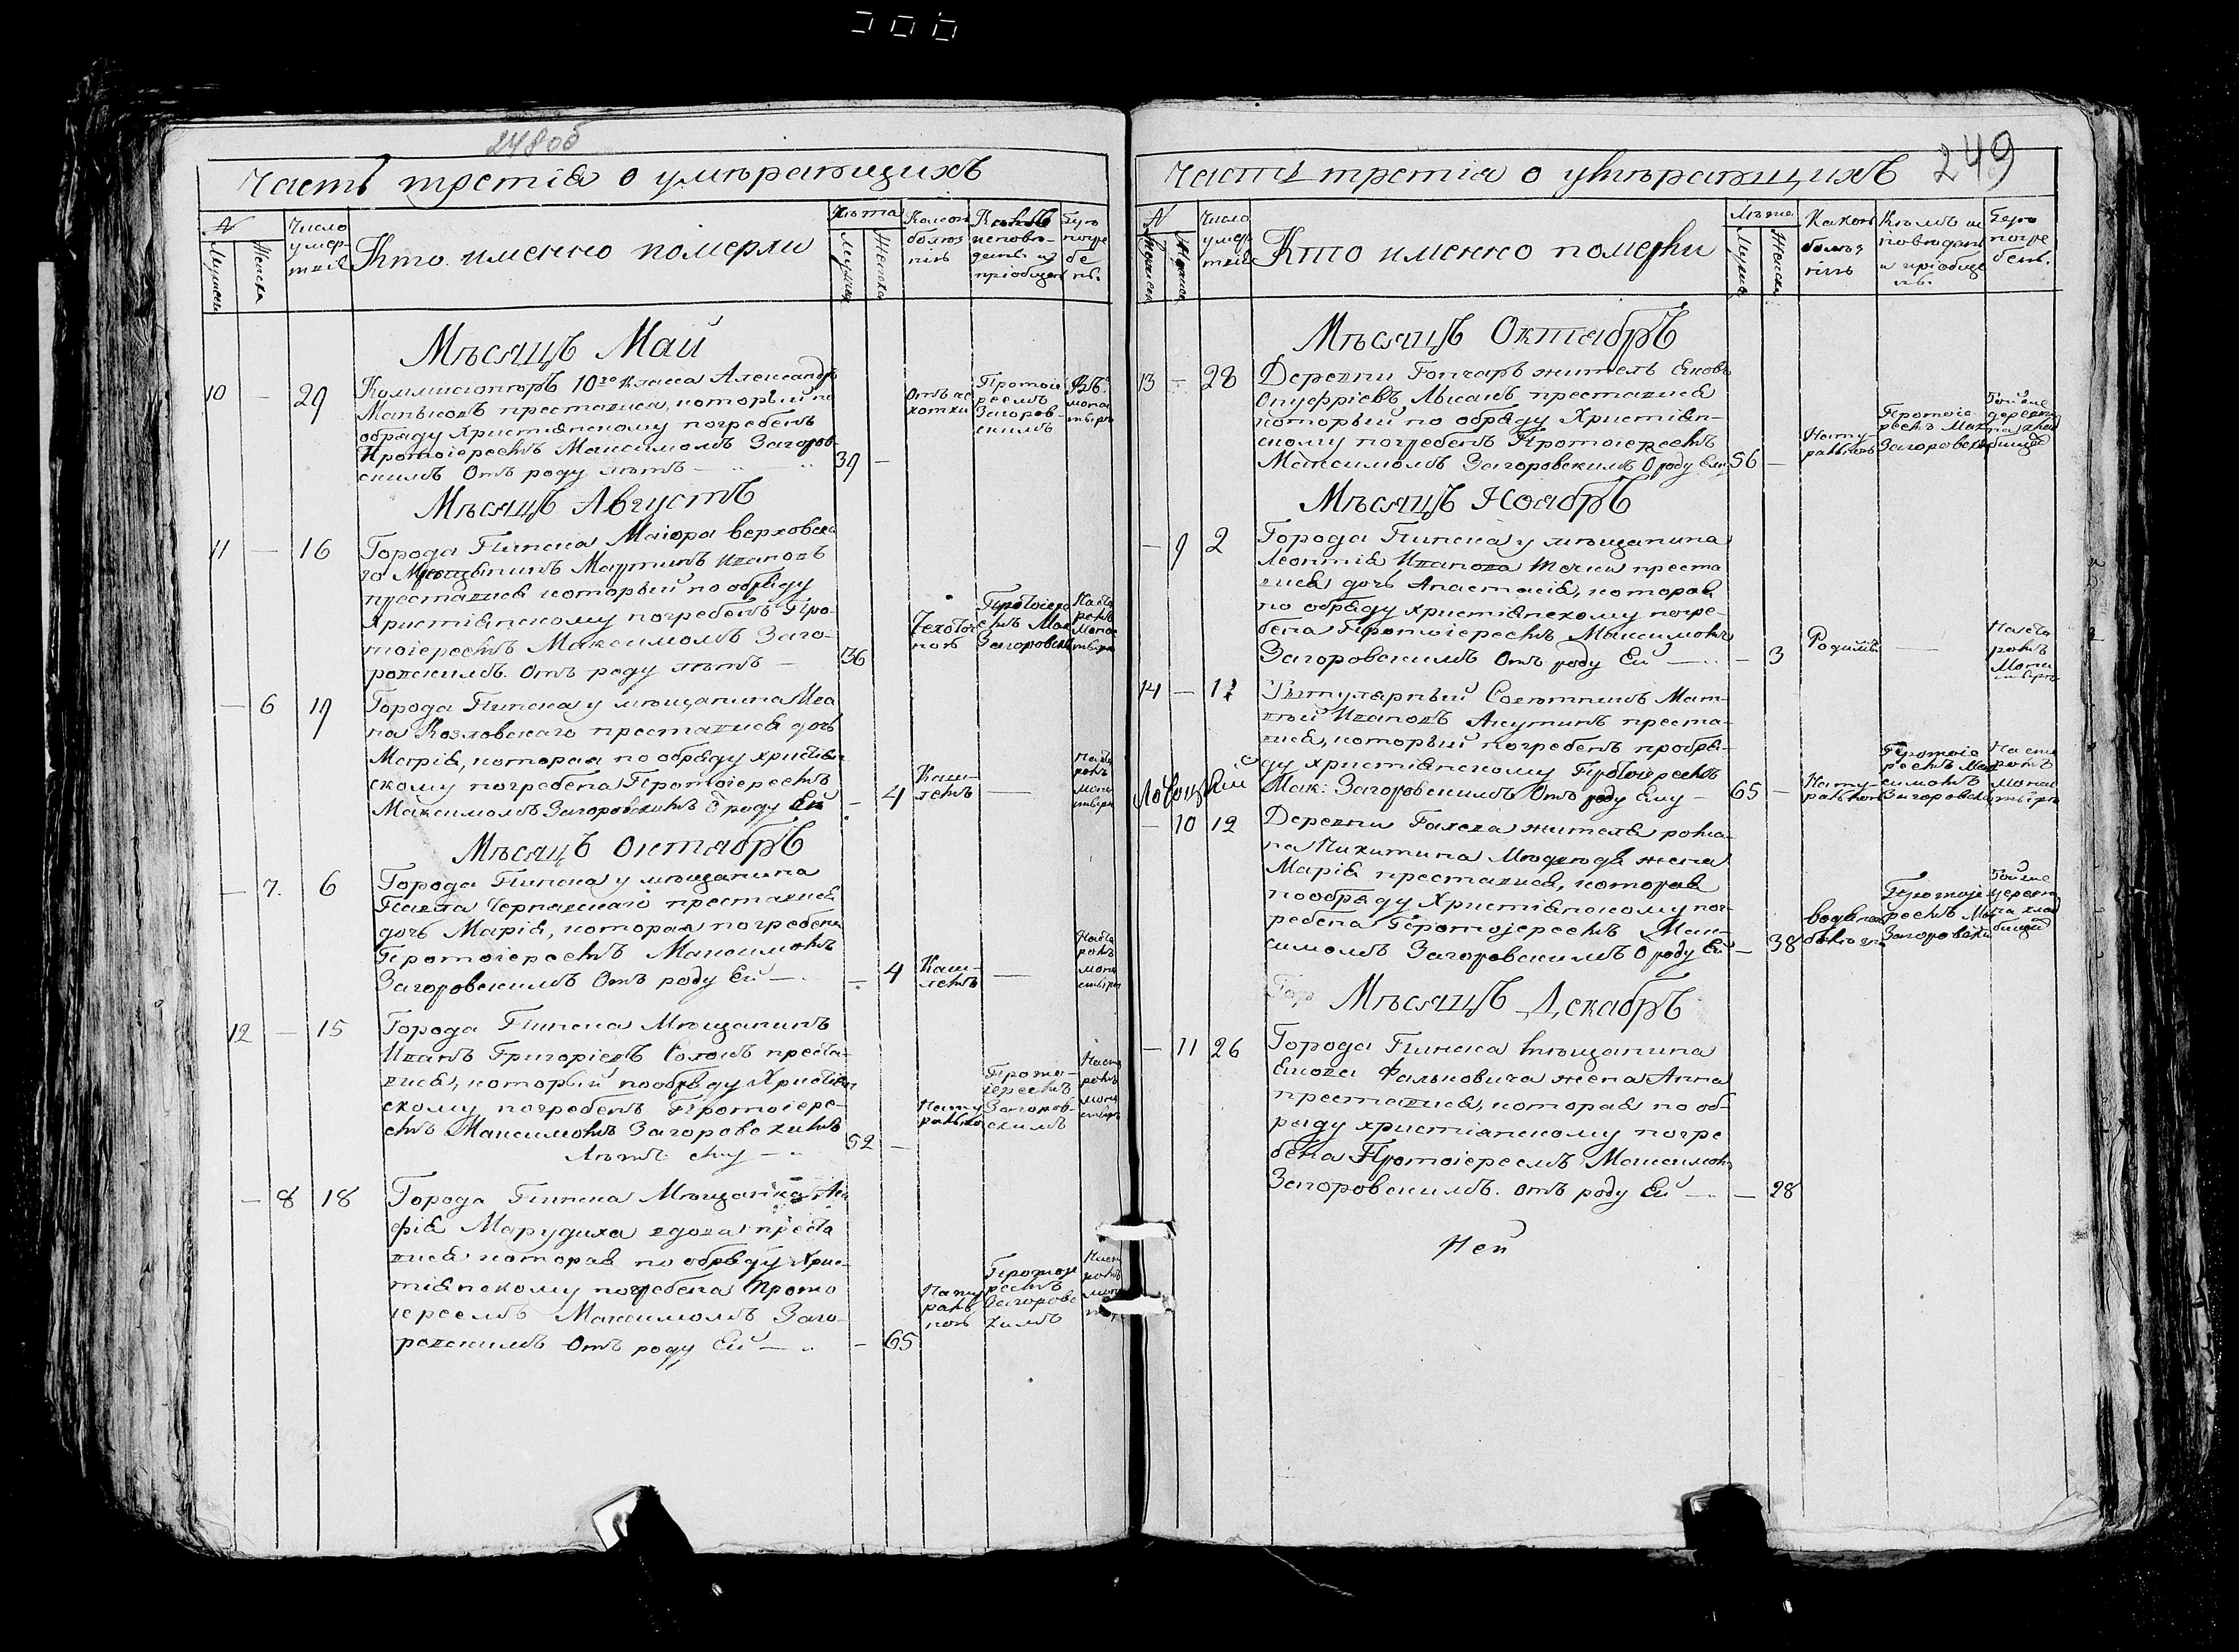 248об
Часть третія о умѣрающихъ
№
Мужеска
Женска
Число умер-
шихъ
Кто именно померли
Лѣта
Мужск
Женска
Какою
болѣз
нію
Кѣмъ
исповѣ-
дань и
пріобщен
Гдѣ
погре
бе
нъ.
Мѣсяцъ Май
10 — 29
Коммисіонеръ 10го класса Александръ
Маньковъ преставися, который по
обряду Христіянскому погребенъ
Протоіереемъ Максимомъ Загоров-
скимъ Отъ роду лѣтъ — 39 —
Отъ чс
хотки
Протоіе
реемъ
Загоров-
скимъ
Въ
мона
тырѣ
Мѣсяцъ Августъ
11 — 16
Города Пинска Маіора Верховска
го Мѣщанинъ Мартинъ Ивановъ
преставися который по обряду
Христіянскому погребенъ Про-
тоіереемъ Максимомъ Заго-
ровскимъ. Отъ роду лѣтъ — 36
Чехоточ
ною
Протоіере
емъ Мак
Загоровск
На ста
ромъ
Мона
стыри
— 6 19
Города Пинска у мѣщанина Ива
на Козловскаго преставися дочь
Марія, которая по обряду христіян
скому погребена Протоіереемъ
Максимомъ Загоровскимъ О роду Ей — 4
Каш-
лемъ
—
На ста
ромъ
мона
стыри
Мѣсяцъ Октябрь
— 7. 6
Города Пинска у мѣщанина
Павла Чернавскаго преставися
дочь Марія, которая погребена
Протоіереемъ Максимомъ
Загоровскимъ Отъ роду Ей — — 4
Каш-
лемъ
—
На ста
ромъ
мона
стыри
12 — 15
Города Пинска Мѣщанинъ
Иванъ Григоріевъ преста-
вися, который по обряду Христіян
скому погребенъ Протоіере-
емъ Максимомъ Загоровскимъ
Лѣтъ ему — 52 —
Нату
рально
Прото-
іереемъ
Загоров-
скимъ
На ста
ромъ
мона
стырѣ
— 8 18
Города Пинска Мѣщанка
фія Марудиха вдова преста
вися которая по обряду Хрис-
тіянскому погребена Прото
іереемъ Максимомъ Заго-
ровскимъ Отъ роду Ей — — 65
Нату
раль
ною
Протоіе
реемъ
Загоровс
кимъ
На ста
ромъ
мона
249
Часть третіа о умѣрающихъ
№
Мужеска
Женска
Число
умер
шихъ
Кто именно померли
Лѣта
Мужск
Женска
Какою
болѣз
нію
Кѣмъ ис
повѣданъ
и пріобще
нъ.
Гдѣ
погре
бенъ.
Мѣсяцъ Октябрь
13 — 28
Деревни Гончаръ житель Яковъ
Онуфріевъ Лысакъ преставися
который по обряду Христіян-
скому погребенъ Протоіереемъ
Максимомъ Загоровскимъ О роду Ему 56 —
Нату-
ральною
Протоіе
реемъ Мак
Загоровск
Той же
деревни
на клад
бищѣ
Мѣсяцъ Ноябрь
— 9 2
Города Пинска у мѣщанина
Леонтія Иванова преста
вися дочь Анастасія, которая
по обряду христіянскому погре-
бена Протоіереемъ Максимомъ
Загоровскимъ Отъ роду Ей — — 3
Родимцемъ
—
На ста
ромъ
Мона
стырѣ
14 — 12
Титулярный Совѣтникъ Мат-
вѣй Ивановъ Акутинъ преста-
вися, который погребенъ по обря-
ду христіянскому Протоіереемъ
Мак: Загоровскимъ Отъ роду Ему — 65 —
Нату-
ральною
Протоіе
реемъ Мак
симомъ
Загоровск
На ста
ромъ
мона
стырѣ
— 10 12
Деревни Галева жителя Рома-
на Никитина Медведя жена
Марія преставися, которая
по обряду Христіянскому пог-
ребена Протоіереемъ Мак-
симомъ Загоровскимъ О роду Ей — 38
Водяною
болѣзн
Протоіе
реемъ Мак
Загоровски
Той же
деревни
на клад
бищѣ
Гор
Мѣсяцъ Декабрь
— 11 26
Города Пинска мѣщанина
Якова Фальковича жена Анна
преставися, которая по об-
ряду христіянскому погре
бена Протоіереемъ Максимом
Загоровскимъ. Отъ роду Ей — — 28